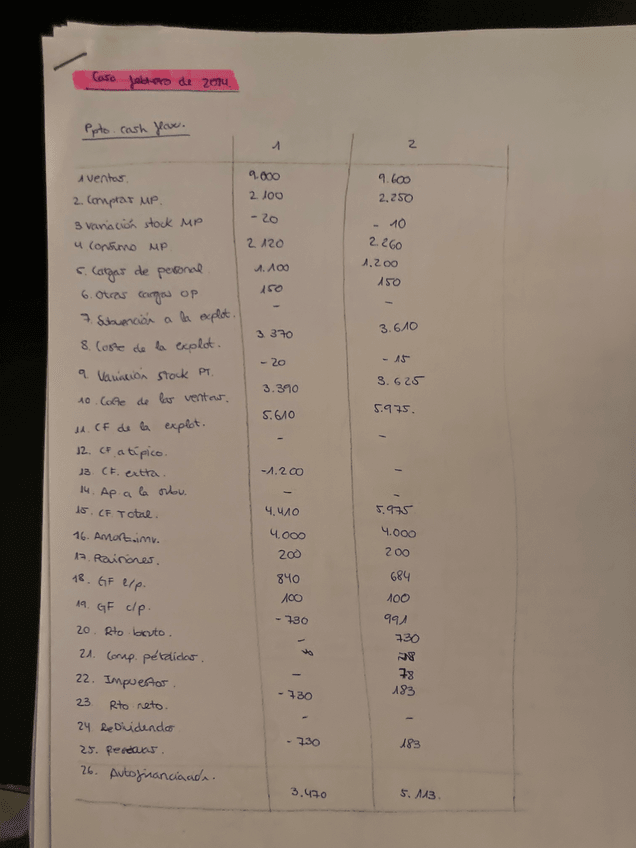 Caso febrero de 2014.
Ppto. cash flow.
1 2
1 Ventas. 9.000 9.600
2. Compras MP. 2 100 2.250
3 Variación stock MP -20 - 10
4 Consumo MP 2 120 2.260
5. Cargas de personal 1.100 1.200
6. Otras cargas OP 150 150
7. Subvención a la explot. - -
8. Coste de la explot. 3.370 3.610
9. Variación stock PT. -20 - 15
10. Coste de las ventas. 3.390 3.625
11. CF de la explot. 5.610 5.975.
12. CF. atípico. - -
13. CF. extra. -1.200 -
14. Ap a la - -
15. CF Total. 4.410 5.975
16. Amort.inv. 4.000 4.000
17. 200 200
18. GF l/p. 840 684
19. GF c/p. 100 100
20. Rto bruto. - 730 991
21. Comp. pérdidas. - 730
22. Impuestos. - 78
23. Rto neto. - 730 183
24 Dividendos - -
25. Reservas. - 730 183
26. Autofinanciación. 3.470 5.113.